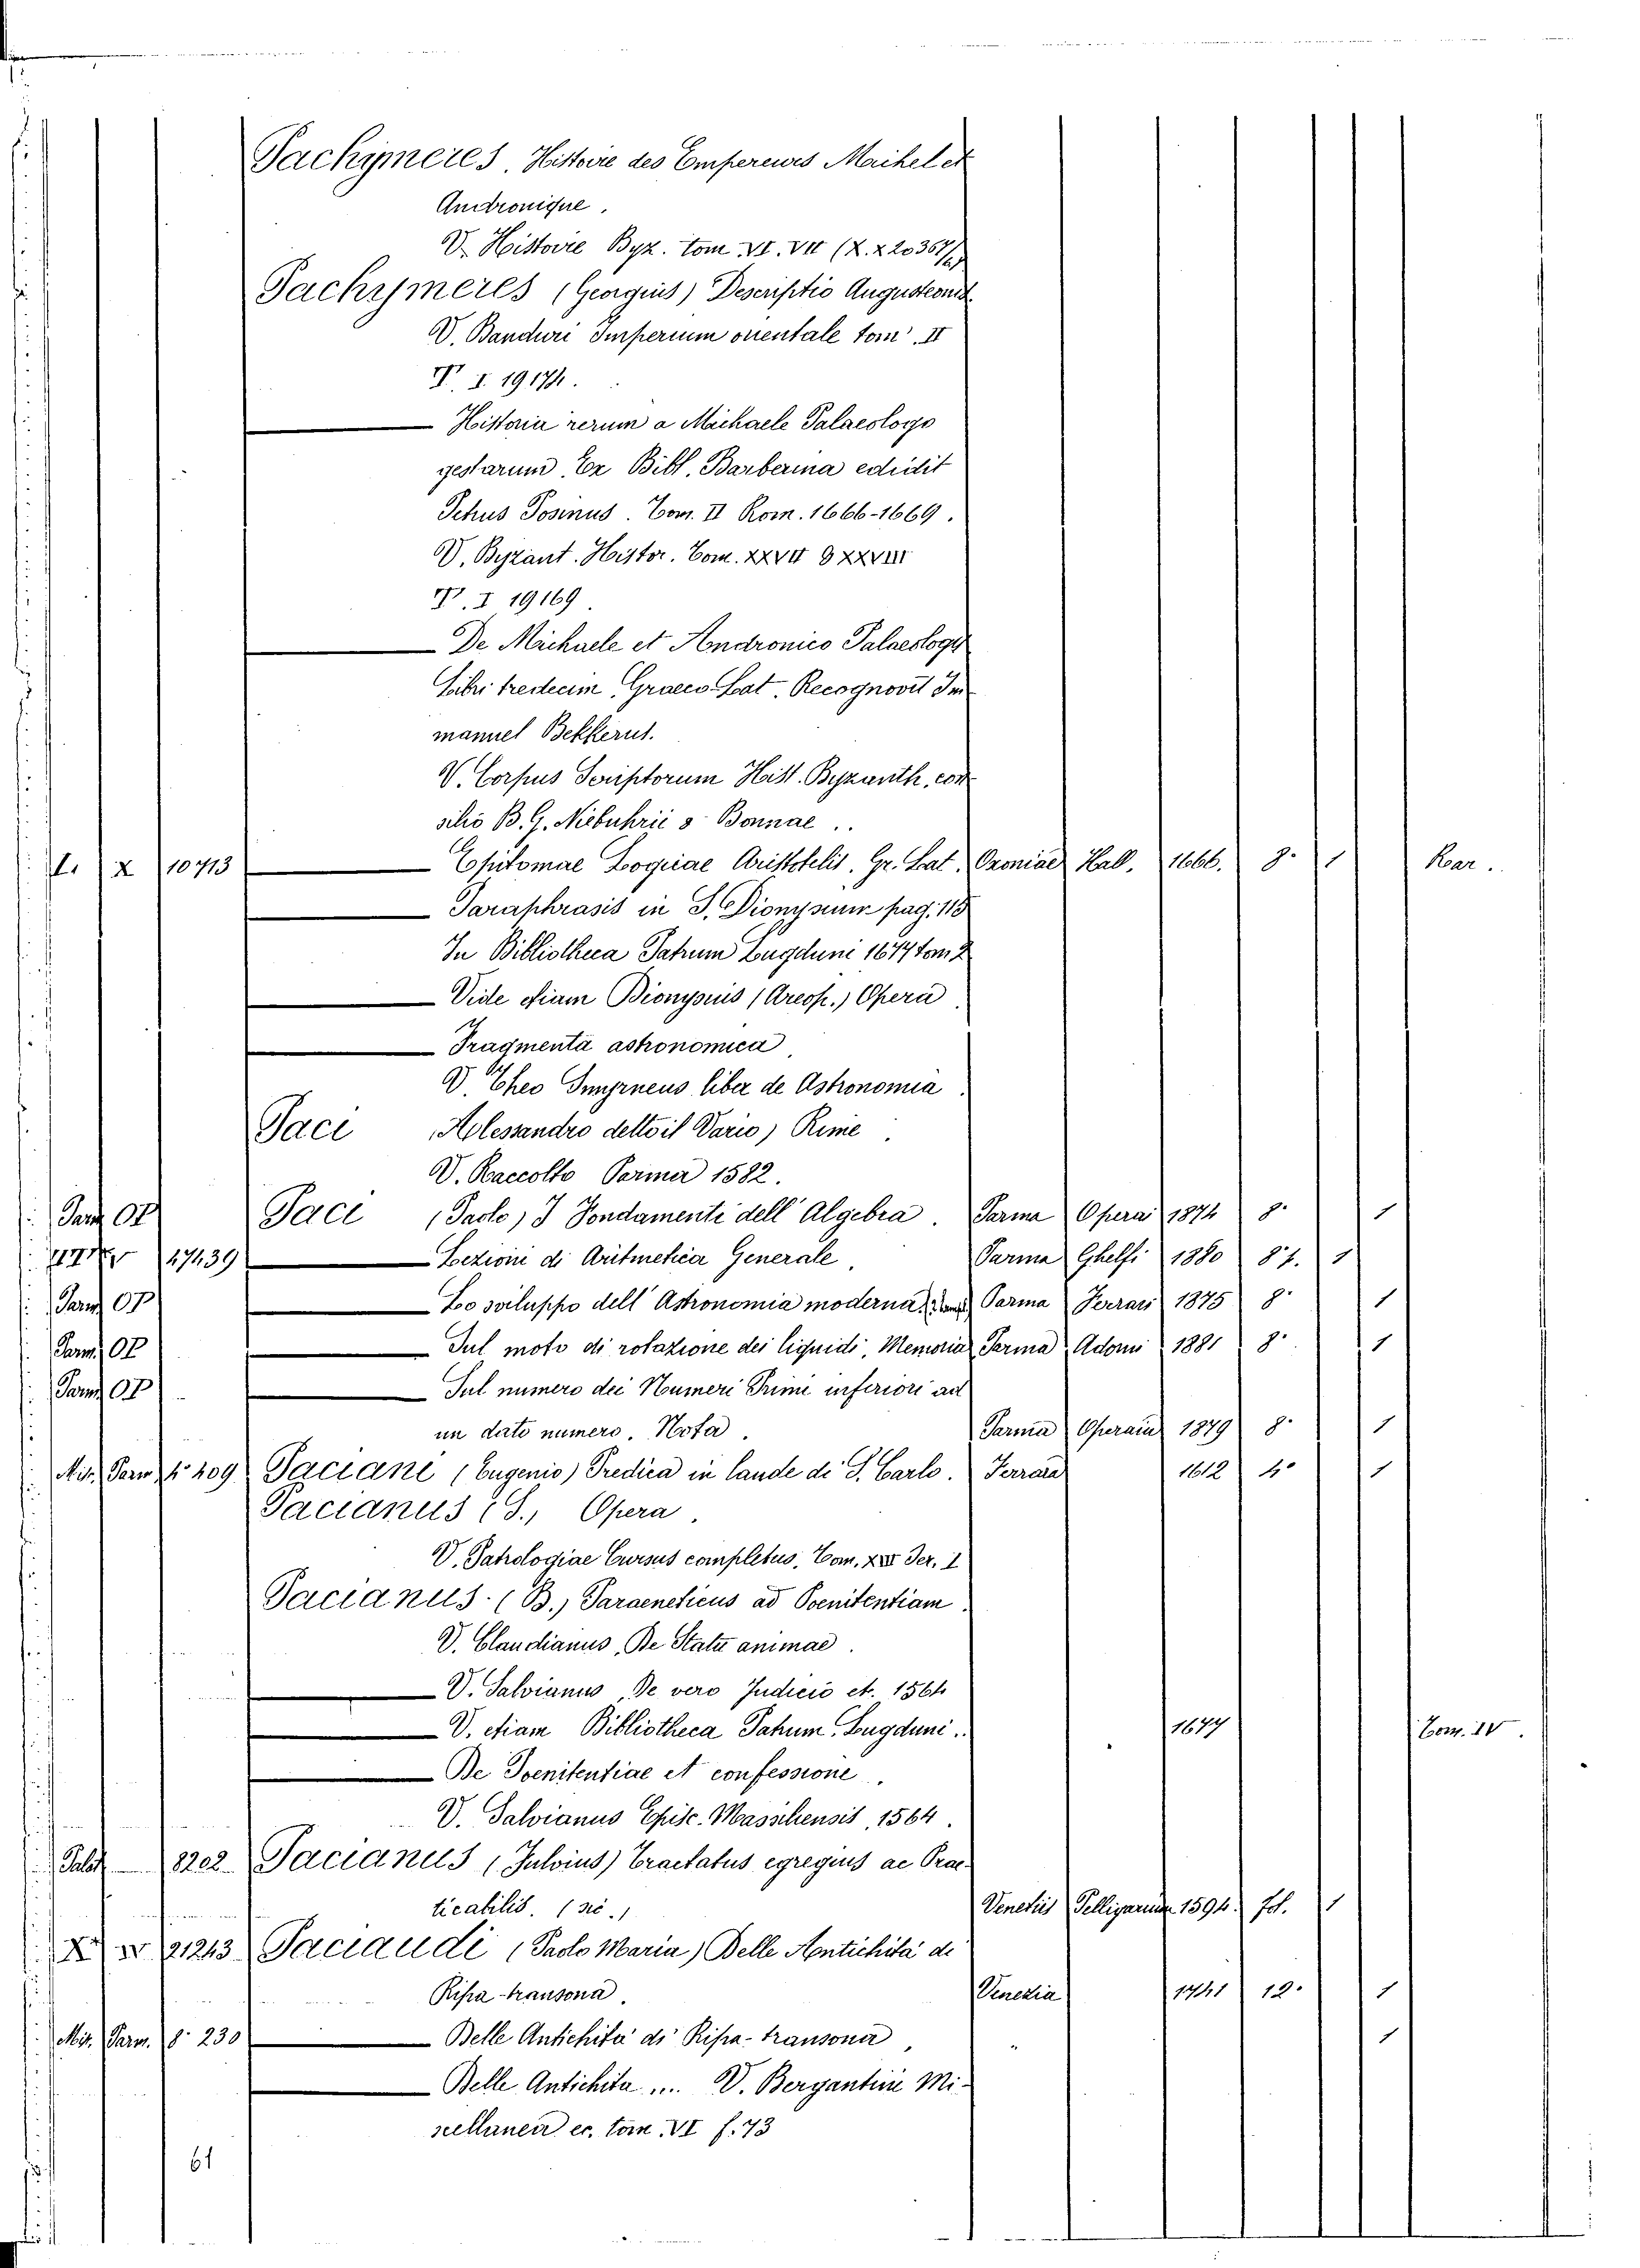 Pachijmeres. Histoire des Empereurs Maihel et
Andronique.
V. Histoire Byz. tom VI. VII (X. x 20367/2)
Pachijmeres (Georgius) Descriptio Augusteonis
V. Banduri Imperium orientale tom. II
P. I. 19174.
Historia rerum a Michaele Palaeologo
gestarum. Ex Bibl. Barberina edidit
Petrus Posinus. Tom. II Rom. 1666-1669.
V. Byzant. Histor. Tom. XXVII & XXVIII
P. I 19169
De Michaele et Andronico Palaeologis
Libri tredecim, Graeco Lat. Recognovit Im
manuel Bekkerus.
V. Corpus Scriptorum Hist. Byzanth. con
silio B. G. Niebuhrii 8 Bonnae..
1. X 10713 Epitomae Logicae Aristotelis. Gr. Lat. Oxoniae Hall. 1666. 8. 1 Rar.
Paraphrasis in S. Dionysium pag. 115
In Bibliotheca Patrum Lugduni 1677 tom 2
Vide etiam Dionysius (Areop.) Opera
Fragmenta astronomica
V. Theo Smyrneus liber de Astronomia
Paci (Alessandro detto il Vario) Rime
V. Raccolto Parma 1582.
Parm OP Paci (Paolo) I Fondamenti dell' Algebra. Parma Operai 1874 8. 1
17439 Lezioni di Aritmetica Generale, Parma Ghelfi 1880 8. 1
Parm OP Lo sviluppo dell' Astronomia moderna, Parma Ferrari 1875 8. 1
Parm. OP Sul moto di rotazione dei liquidi, Memoria Parma Adorni 1881 8. 1
Parm OP Sul numero dei Numeri Primi inferiori ad
un dato numero. Nota. Parma Operaia 1879 8. 1
Mis. Parm 4. 209 Paciani (Eugenio) Predica in laude di S. Carlo. Ferrara 1612 4. 1
Pacianus (S.) Opera.
V. Patrologiae Cursus completus. Tom. XIII Ser. I
Pacianus (B.) Paraeneticus ad Poenitentiam
V. Claudianus, De Statu animae.
V. Salvianus, De vero Judicio et. 1564
V. etiam Bibliotheca Patrum, Lugduni. 1677 Tom. IV.
De Poenitentiae et confessione.
V. Salvianus Episc. Massihensis, 1564.
Palat 8202 Pacianus (Fulvius) Tractatus egregius ac Prac
ticabilis. (sic.) Venetiis Pelligarium 1594. fol. 1
X IV 21243 Paciaudi (Paolo Maria) Delle Antichità di
Ripa-transona. Venezia 1741 12. 1
Mis. Parm. 8. 230 Delle Antichità di Ripa-transona, 1
Delle Antichità .... V. Bergantini Mi-
scellanea ec. tom. VI f. 73
61